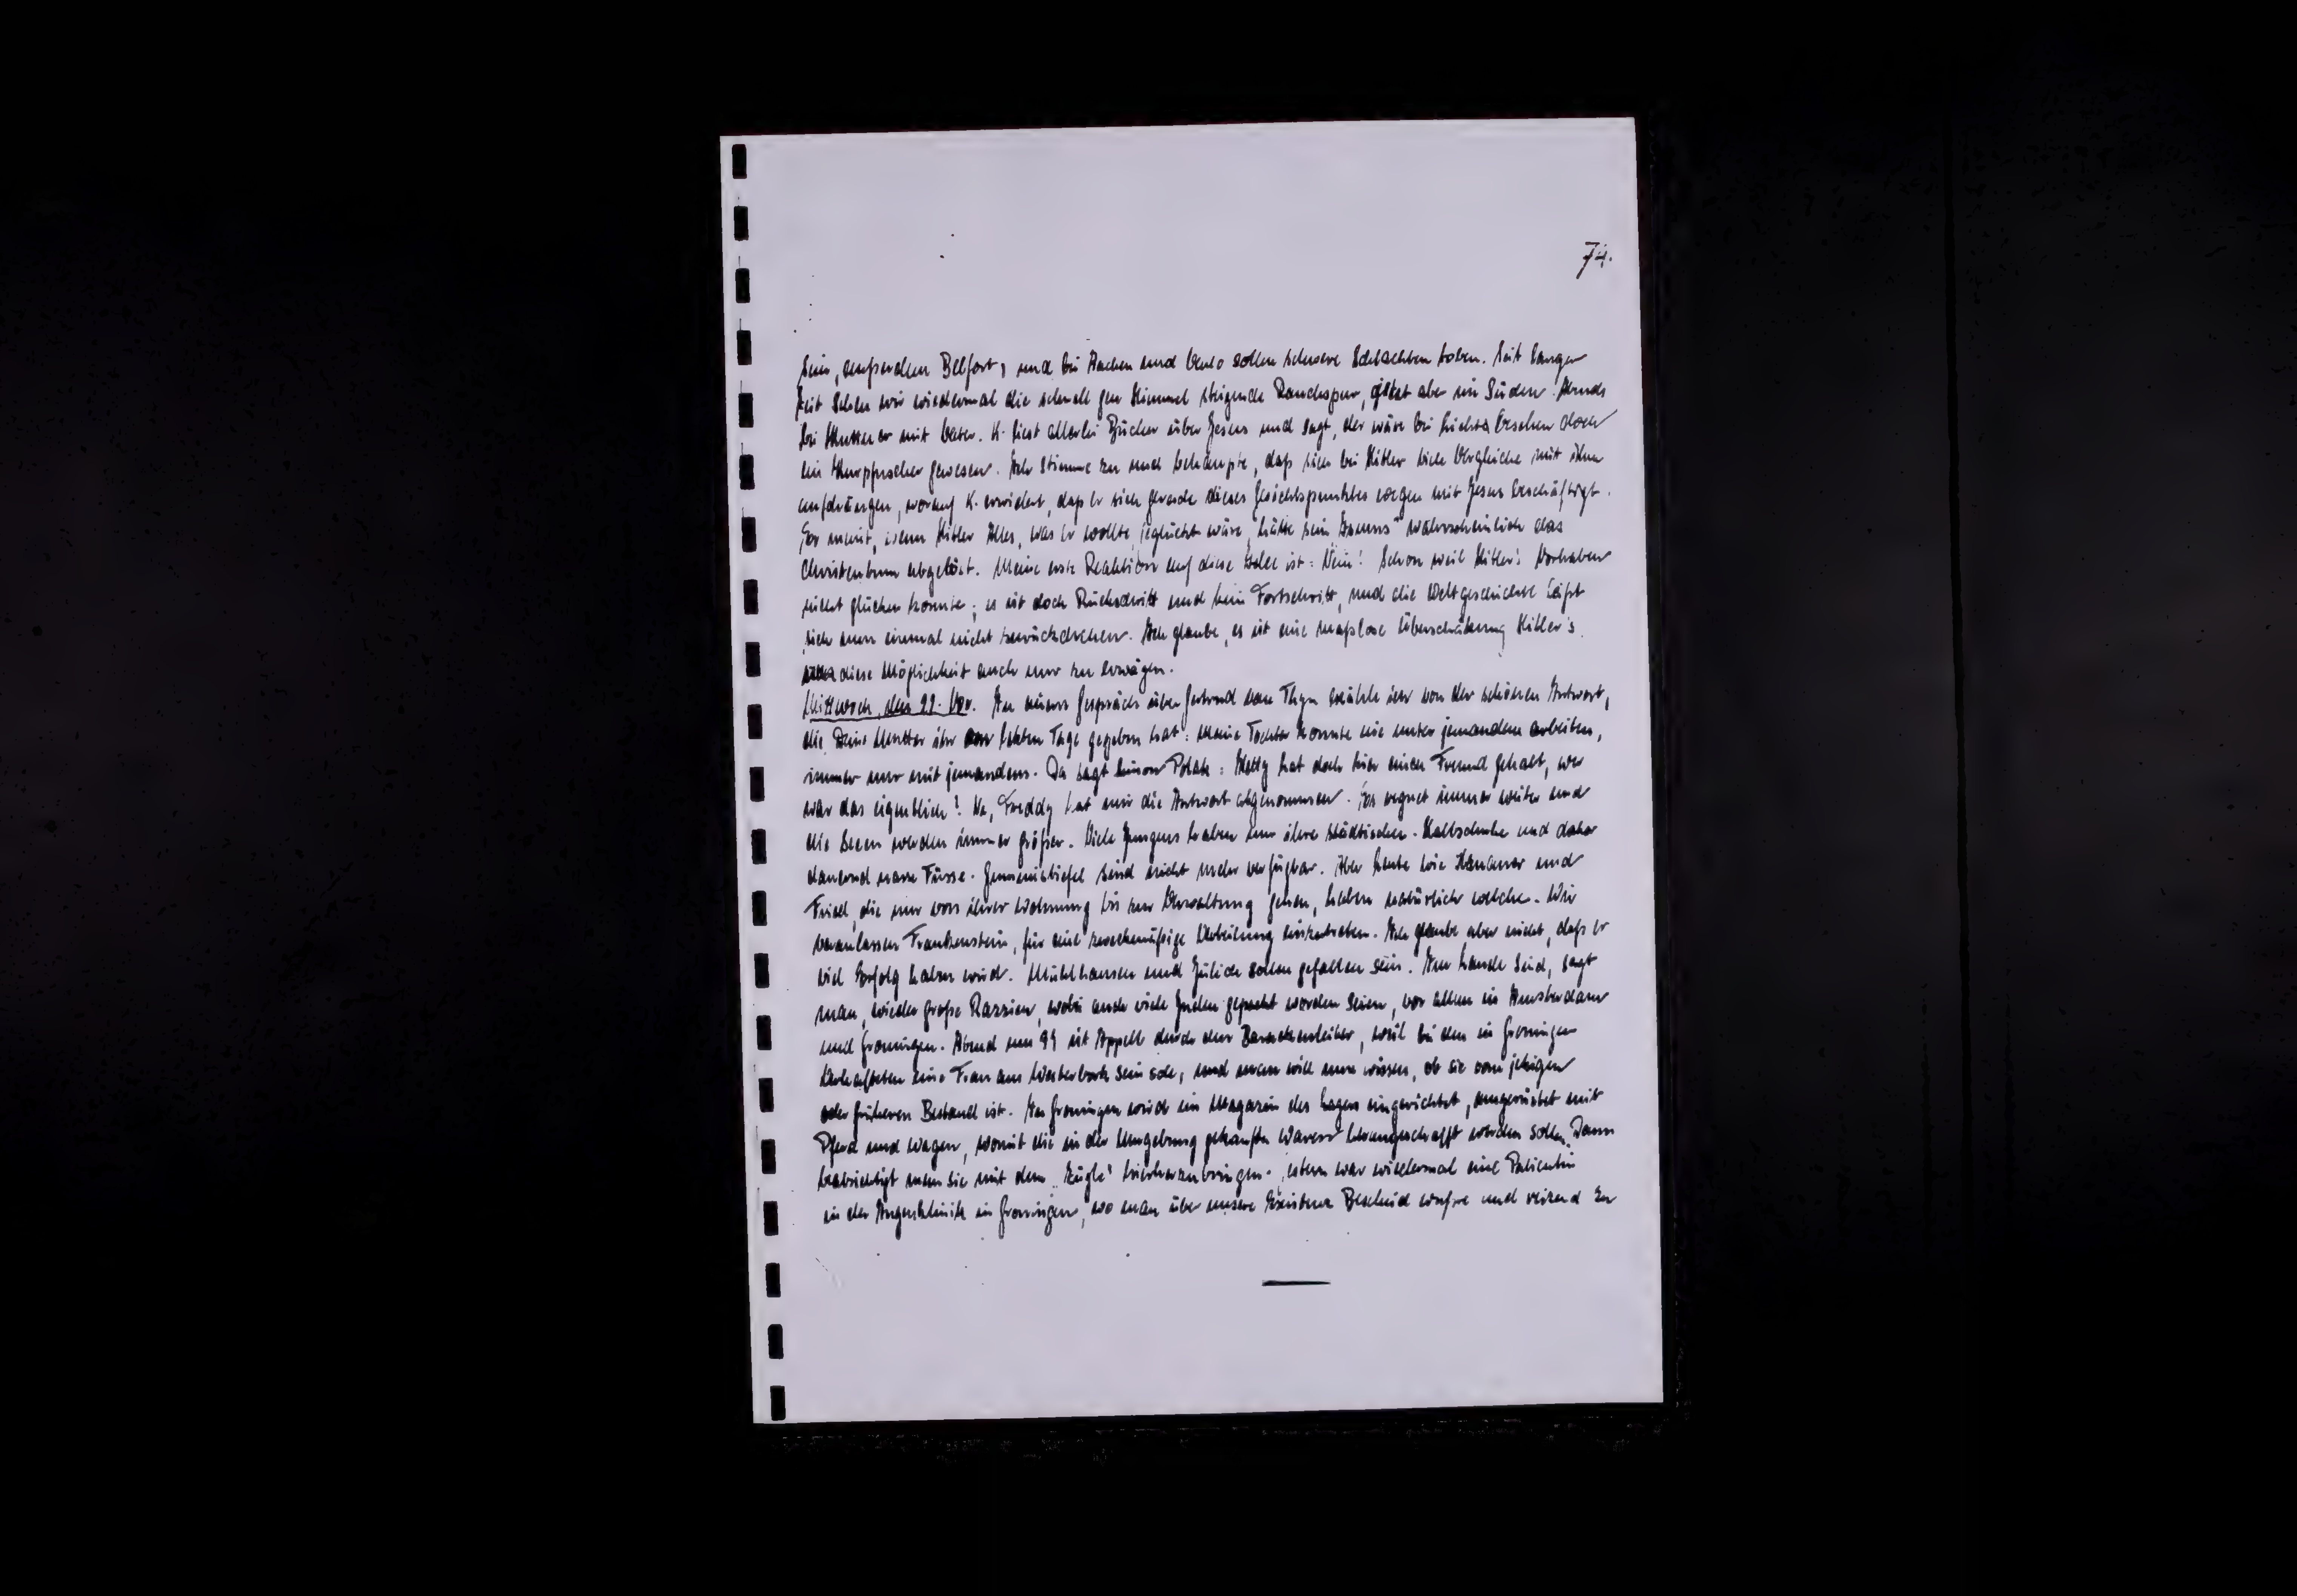 74.
sein, außerdem Belfort, und bei Aachen und Venlo sollen schwere Schlachten toben. Seit langer
Zeit sehen wir wiedermal die schnell gen Himmel steigende Rauchspur, jetzt aber im Süden. Abends
bei Kuttner mit Vater. K. liest allerlei Bücher über Jesus und sagt, der wäre bei Lichte besehen doch
ein Kurpfuscher gewesen. Ich stimme zu und behaupte, daß sich bei Hitler viele Vergleiche mit ihm
aufdrängen, worauf K. erwidert, daß er sich gerade dieses Gesichtspunktes wegen mit Jesus beschäftigt.
Er meint, wenn Hitler Alles, was er wollte, geglückt wäre, hätte sein wahrscheinlich das
Christentum abgelöst. Meine erste Reaktion auf diese Idee ist: Nein! Schon weil Hitler's Vorhaben
nicht glücken konnte; es ist doch Rückschritt und kein Fortschritt, und die Weltgeschichte läßt
sich nun einmal nicht zurückdrehen. Ich glaube, es ist eine maßlose Überschätzung Hitler's
diese Möglichkeit auch nur zu erwägen.
Mittwoch, den 22. Nov. In einem Gespräch über Gertrud van Thyn erzähle ich von der schönen Antwort,
die Deine Mutter ihr letzten Tage gegeben hat: Meine Tochter konnte nie unter jemandem arbeiten,
immer nur mit jemandem. Da sagt Simon Polak: hat doch hier einen Freund gehabt, wer
war das eigentlich? Na, Freddy hat mir die Antwort abgenommen. Es regnet immer weiter und
die Seen werden immer größer. Viele Jungens haben nur ihre städtischen Halbschuhe und daher
dauernd nasse Füsse. Gummistiefel sind nicht mehr verfügbar. Aber Leute wie und
Fried, die nur von ihrer Wohnung bis zur Verwaltung gehen, haben natürlich welche. Wir
veranlassen Frankenstein, für eine zweckmäßige Verteilung einzutreten. Ich glaube aber nicht, daß er
viel Erfolg haben wird. Mühlhausen und Jülich sollen gefallen sein. Im Lande sind, sagt
man, wieder große Razzien, wobei auch viele Juden gepackt worden seien, vor allem in Amsterdam
und Groningen. Abend um 11 ist Appell durch den Barackenleiter, weil bei den in Groningen
Verhafteten eine Frau aus Westerbork sein soll, und man will nun wissen, ob sie vom jetzigen
oder früheren Bestand ist. In Groningen wird ein Magazin des Lagers eingerichtet, ausgerüstet mit
Pferd und Wagen, womit die in der Umgebung gekauften Waren herangeschafft werden sollen. Dann
beabsichtigt man sie mit dem „Zügle" hierherzubringen. Gestern war wiedermal eine Patientin
in der Augenklinik in Groningen, wo man über unsere Existenz Bescheid wußte und reizend zu